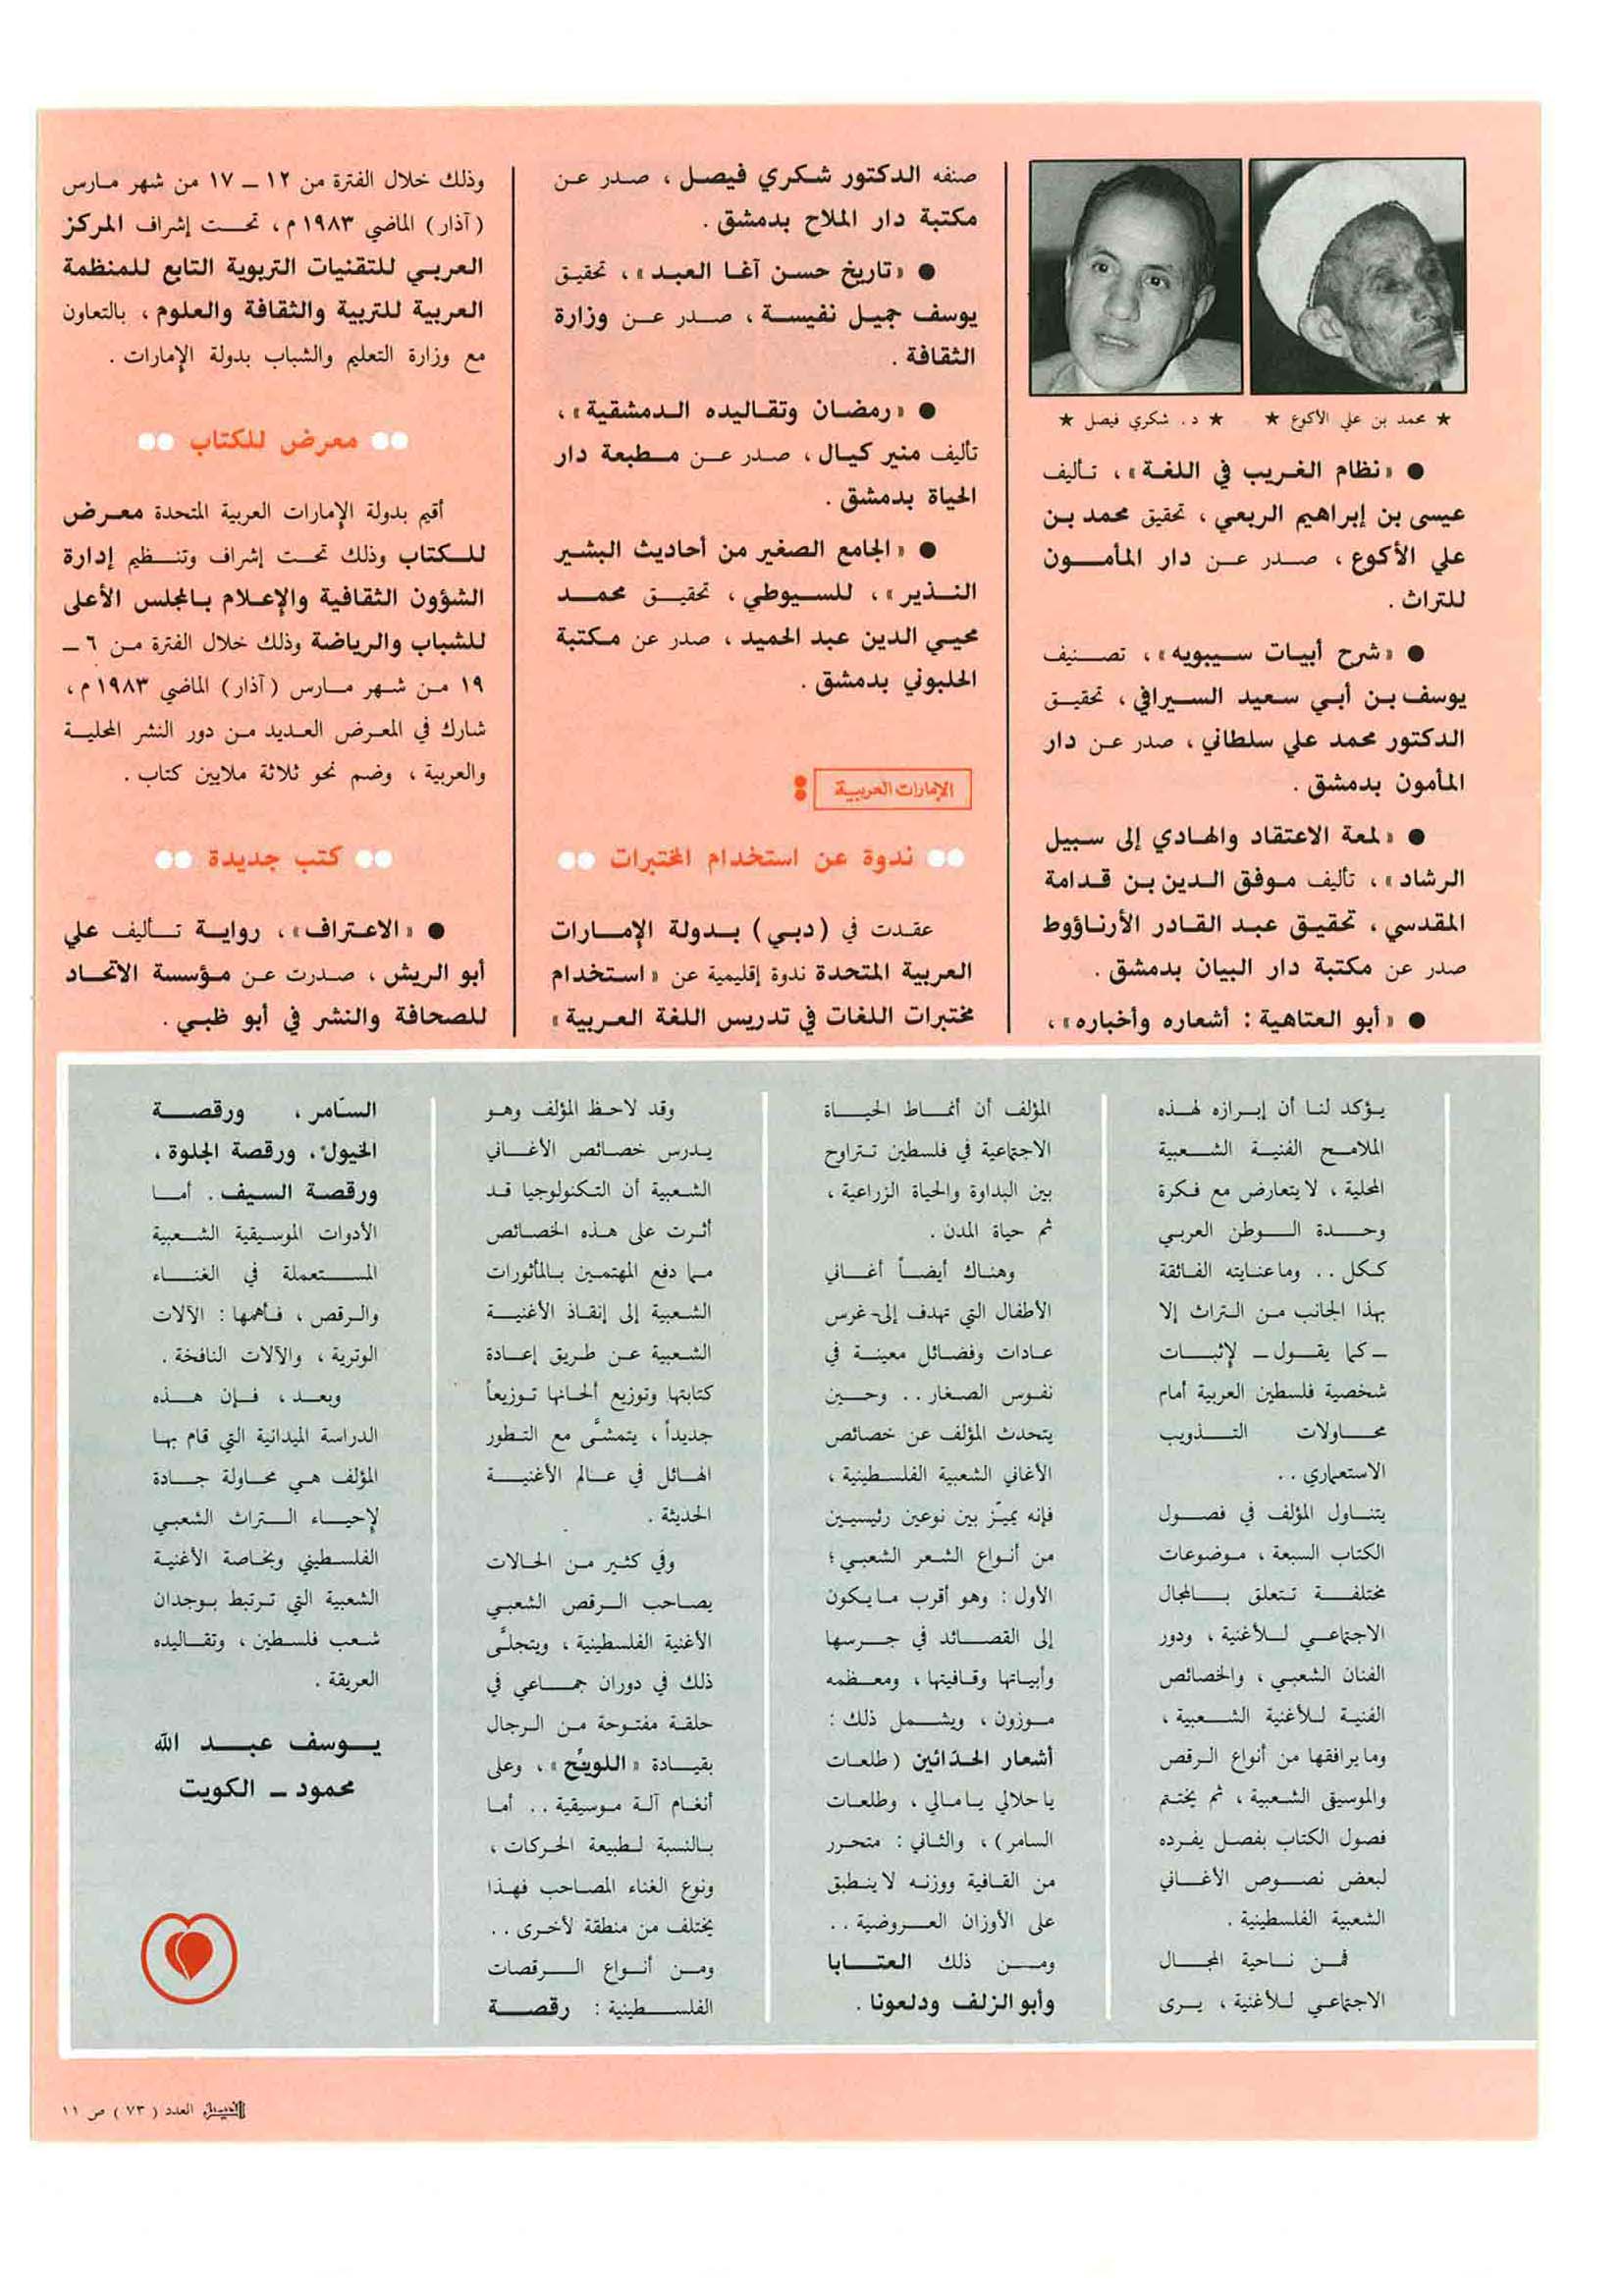 ★ محمد بن علي الأكوع ★
★ د. شكري فيصل ★
● «نظام الغريب في اللغة»، تأليف
عيسى بن إبراهيم الربعي، تحقيق محمد بن
علي الأكوع، صدر عن دار المأمون
للتراث.
● «شرح أبيات سيبويه»، تصنيف
يوسف بن أبي سعيد السيرافي، تحقيق
الدكتور محمد علي سلطاني، صدر عن دار
المأمون بدمشق.
● «لمعة الاعتقاد والهادي إلى سبيل
الرشاد»، تأليف موفق الدين بن قدامة
المقدسي، تحقيق عبد القادر الأرناؤوط
صدر عن مكتبة دار البيان بدمشق.
● «أبو العتاهية: أشعاره وأخباره»،
صنفه الدكتور شكري فيصل، صدر عن
مكتبة دار الملاح بدمشق.
● «تاريخ حسن آغا العبد»، تحقيق
يوسف جميل نفيسة، صدر عن وزارة
الثقافة.
● «رمضان وتقاليده الدمشقية»،
تأليف منير كيال، صدر عن مطبعة دار
الحياة بدمشق.
● «الجامع الصغير من أحاديث البشير
النذير»، للسيوطي، تحقيق محمد
محيي الدين عبد الحميد، صدر عن مكتبة
الحلبوني بدمشق.
الإمارات العربية :
●● ندوة عن استخدام المختبرات ●●
عقدت في (دبي) بدولة الإمارات
العربية المتحدة ندوة إقليمية عن «استخدام
مختبرات اللغات في تدريس اللغة العربية»
وذلك خلال الفترة من ١٢ – ١٧ من شهر مارس
(آذار) الماضي ١٩٨٣م، تحت إشراف المركز
العربي للتقنيات التربوية التابع للمنظمة
العربية للتربية والثقافة والعلوم، بالتعاون
مع وزارة التعليم والشباب بدولة الإمارات.
●● معرض للكتاب ●●
أقيم بدولة الإمارات العربية المتحدة معرض
للكتاب وذلك تحت إشراف وتنظيم إدارة
الشؤون الثقافية والإعلام بالمجلس الأعلى
للشباب والرياضة وذلك خلال الفترة من ٦ –
١٩ من شهر مارس (آذار) الماضي ١٩٨٣م،
شارك في المعرض العديد من دور النشر المحلية
والعربية، وضم نحو ثلاثة ملايين كتاب.
●● كتب جديدة ●●
● «الاعتراف»، رواية تأليف علي
أبو الريش، صدرت عن مؤسسة الاتحاد
للصحافة والنشر في أبو ظبي.
يؤكد لنا أن إبرازه لهذه
الملامح الفنية الشعبية
المحلية، لا يتعارض مع فكرة
وحدة الوطن العربي
ككل.. وما عنايته الفائقة
بهذا الجانب من التراث إلا
– كما يقول – لإثبات
شخصية فلسطين العربية أمام
محاولات التذويب
الاستعماري..
يتناول المؤلف في فصول
الكتاب السبعة، موضوعات
مختلفة تتعلق بالمجال
الاجتماعي للأغنية، ودور
الفنان الشعبي، والخصائص
الفنية للأغنية الشعبية،
وما يرافقها من أنواع الرقص
والموسيقى الشعبية، ثم يختتم
فصول الكتاب بفصل يفرده
لبعض نصوص الأغاني
الشعبية الفلسطينية.
فمن ناحية المجال
الاجتماعي للأغنية، يرى
المؤلف أن أنماط الحياة
الاجتماعية في فلسطين تتراوح
بين البداوة والحياة الزراعية،
ثم حياة المدن.
وهناك أيضاً أغاني
الأطفال التي تهدف إلى غرس
عادات وفضائل معينة في
نفوس الصغار.. وحين
يتحدث المؤلف عن خصائص
الأغاني الشعبية الفلسطينية،
فإنه يميّز بين نوعين رئيسيين
من أنواع الشعر الشعبي؛
الأول: وهو أقرب ما يكون
إلى القصائد في جرسها
وأبياتها وقافيتها، ومعظمه
موزون، ويشمل ذلك:
أشعار الحدّائين (طلعات
يا حلالي يا مالي، وطلعات
السامر)، والثاني: متحرر
من القافية ووزنه لا ينطبق
على الأوزان العروضية..
ومن ذلك العتابا
وأبو الزلف ودلعونا.
وقد لاحظ المؤلف وهو
يدرس خصائص الأغاني
الشعبية أن التكنولوجيا قد
أثرت على هذه الخصائص
مما دفع المهتمين بالمأثورات
الشعبية إلى إنقاذ الأغنية
الشعبية عن طريق إعادة
كتابتها وتوزيع ألحانها توزيعاً
جديداً، يتمشَّى مع التطور
الهائل في عالم الأغنية
الحديثة.
وفي كثير من الحالات
يصاحب الرقص الشعبي
الأغنية الفلسطينية، ويتجلَّى
ذلك في دوران جماعي في
حلقة مفتوحة من الرجال
بقيادة «اللويّح»، وعلى
أنغام آلة موسيقية.. أما
بالنسبة لطبيعة الحركات،
ونوع الغناء المصاحب فهذا
يختلف من منطقة لأخرى..
ومن أنواع الرقصات
الفلسطينية: رقصة
السّامر، ورقصة
الخيول، ورقصة الجلوة،
ورقصة السيف. أما
الأدوات الموسيقية الشعبية
المستعملة في الغناء
والرقص، فأهمها: الآلات
الوترية، والآلات النافخة.
وبعد، فإن هذه
الدراسة الميدانية التي قام بها
المؤلف هي محاولة جادة
لإحياء التراث الشعبي
الفلسطيني وبخاصة الأغنية
الشعبية التي ترتبط بوجدان
شعب فلسطين، وتقاليده
العريقة.
يوسف عبد الله
محمود – الكويت
الفيصل العدد (٧٣) ص ١١